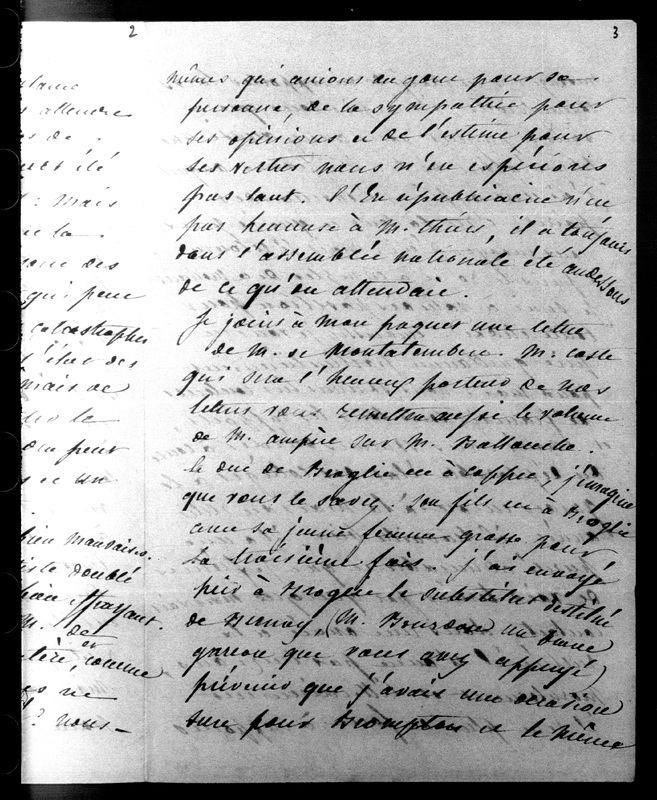 2
3
attendre
de
été
: mais
la
des
qui peut
catastrophes
l'état des
mais de
le
peut
un
bien mauvaise.
doublé
bien effrayant.
M. de
et
comme
ne
? nous -
mêmes qui avions du gout pour sa
personne, de la sympathie pour
ses opinions et de l'estime pour
ses vertus nous n'en espérions
pas tant. l'Ere républicaine n'est
pas heureuse à M. Thiers, il a toujours
dans l'assemblée nationale été audessous
de ce qu'on attendait.
Je joins à mon paquet une lettre
de M. de Montalembert. M. coste
qui sera l'heureux porteur de nos
lettres vous remettra aussi le volume
de M. ampère sur M. Ballanche.
le duc de Broglie en a coppet, j'imagine
que vous le savez. son fils est à Broglie
avec sa jeune femme grosse pour
la troisième fois. j'ai envoyé
hier à Broglie le substitut destitué
de Bernay, (M. Bourdon un brave
garcon que vous avez appuyé)
prévenir que j'avais une occasion
sure pour Brompton et le même